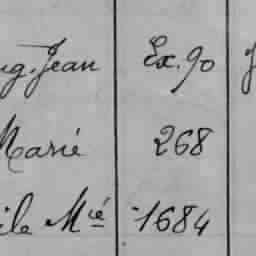 ug. Jean Ex. 90
Marié 268
ile Mié 1684